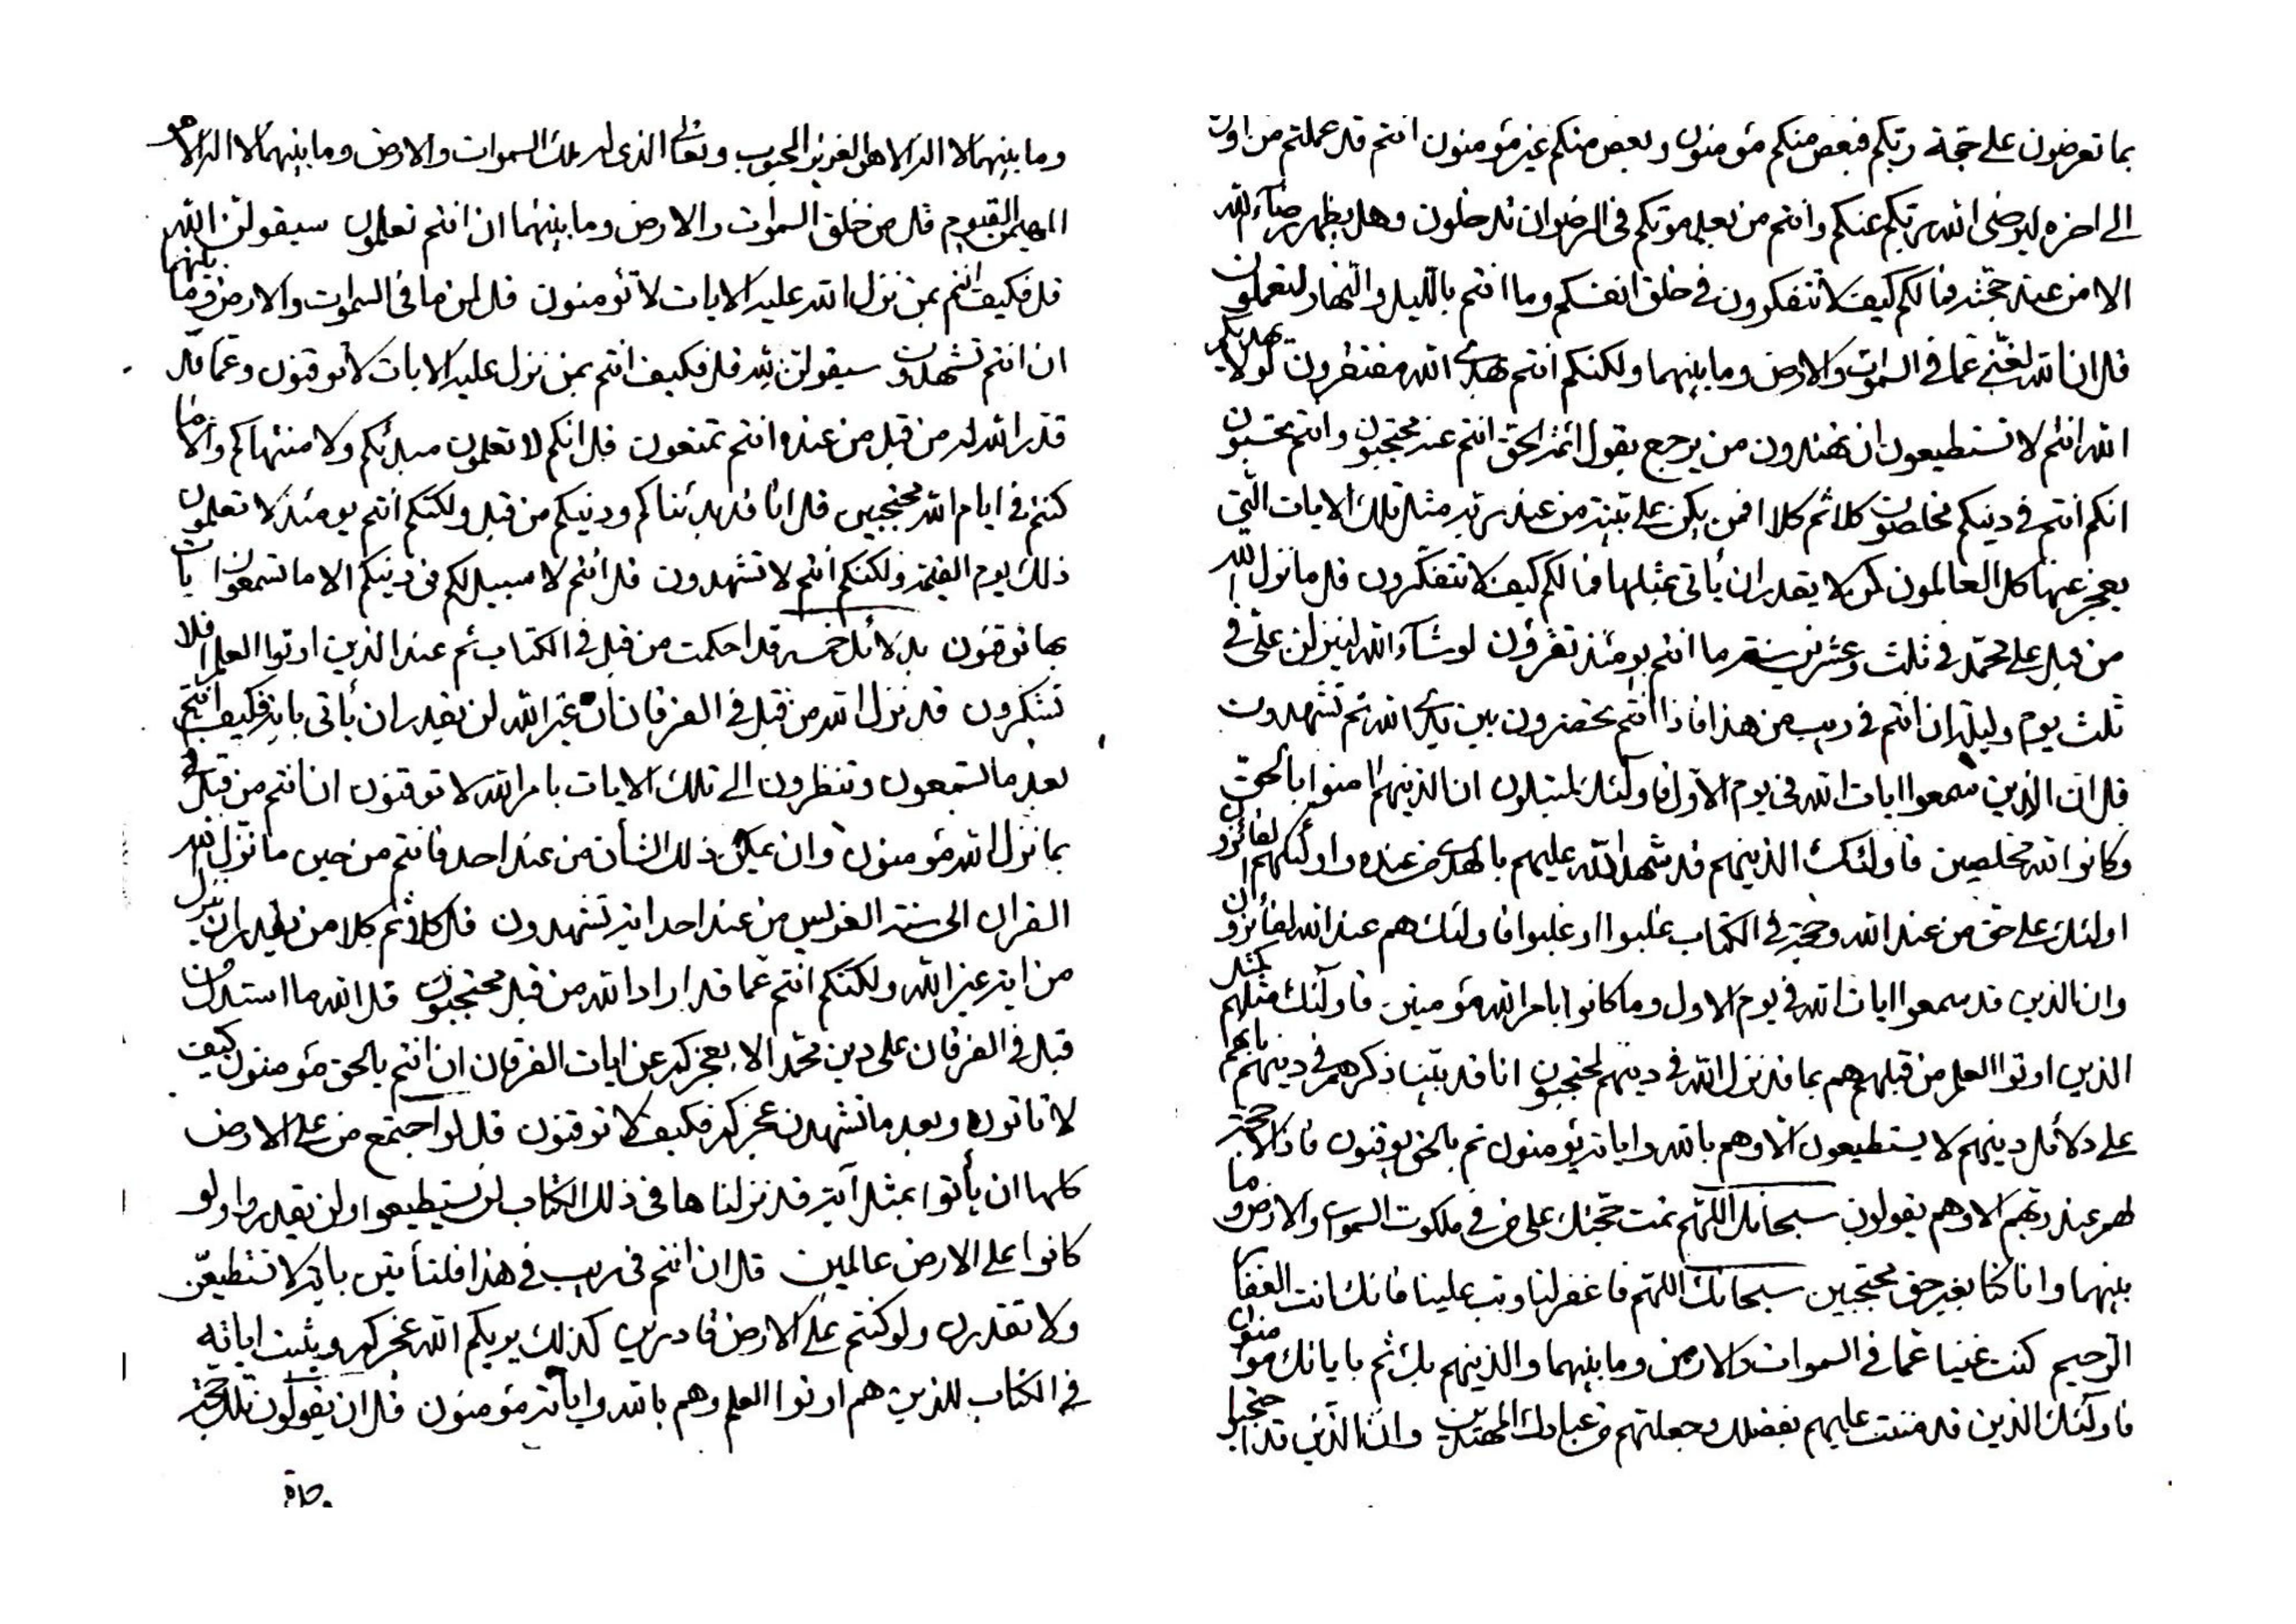 بما تعرضون على حجة ربكم فبعض منكم مؤمنون وبعض منكم غير مؤمنون انتم قد عملتم من اول
الى اخره ليرضى الله ربكم عنكم وانتم من بعد موتكم فى الرضوان تدخلون وهل يظهر رضاء الله
الا من عند حجته فما لكم كيف لا تتفكرون فى خلق انفسكم وما انتم بالليل والنهار لتعملون
قل ان الله لغنى عما فى السموات والارض وما بينهما ولكنكم انتم بهدى الله مفتقرون لو لا يهديكم
الله انتم لا تستطيعون ان تهتدون من يرجع بقول ائمة الحق انتم عنه محتجبون وانتم تحسبون
انكم انتم فى دينكم مخلصون كلا ثم كلا افمن يكن على بينة من عند ربه مثل تلك الايات التى
يعجز عنها كل العالمون كمن لا يقدر ان يأتى بمثلها فما لكم كيف لا تتفكرون قل ما نزل الله
من قبل على محمد فى ثلث وعشرين سنة ما انتم يومئذ تقرؤن لو شاء الله لينزلن على فى
ثلث يوم وليلة ان انتم فى ريب من هذا فاذا انتم تحضرون بين يدى الله ثم تشهدون
قل ان الذين سمعوا ايات الله فى يوم الاول فاولئك ان الذينهم امنوا بالحق
وكانوا لله مخلصين فاولئك الذينهم قد شهد الله عليهم بالهدى من عنده واولئك هم الفائزون
اولئك على حق من عند الله وحجة فى الكتاب غلبوا او غلبوا فاولئك هم عند الله لفائزون
وان الذين قد سمعوا ايات الله فى يوم الاول وما كانوا بامر الله مؤمنين فاولئك مثلهم كمثل
الذين اوتوا العلم من قبلهم هم بما قد نزل الله فى دينهم لمحتجبون انا قد بينا ذكرهم فى دينهم بانهم
على دلائل دينهم لا يستطيعون الا وهم بالله واياته يؤمنون ثم بالحق يوقنون فاذا لا حجة
لهم عند ربهم الا وهم يقولون سبحانك اللهم تمت حجتك على من فى ملكوت السموات والارض وما
بينهما وانا كنا بغير حق محتجبين سبحانك اللهم فاغفر لنا وتب علينا فانك انت الغفار
الرحيم كنت غنيا عما فى السموات والارض وما بينهما والذينهم بك ثم باياتك مؤمنون
فاولئك الذين قد مننت عليهم بفضلك وجعلتهم من عبادك المهتدين وان الذين قد احتجبوا
وما بينهما لا اله الا هو العزيز المحبوب وتعالى الذى له ملك السموات والارض وما بينهما لا اله الا هو
المهيمن القيوم قل من خلق السموات والارض وما بينهما ان انتم تعلمون سيقولن الله
قل فكيف انتم بمن نزل الله عليه الايات لا تؤمنون قل لمن ما فى السموات والارض وما بينهما
ان انتم تشهدون سيقولن لله قل فكيف انتم بمن نزل عليه الايات لا توقنون وعما قد
قدر الله له من قبل من عنده انتم تمنعون قل انكم لا تعلمون مبدئكم ولا منتهاكم والا ما
كنتم فى ايام الله محتجبين قل انا قد بدئناكم ودينكم من قبل ولكنكم انتم يومئذ لا تعلمون
ذلك يوم القيمة ولكنكم انتم لا تشهدون قل انتم لا سبيل لكم فى دينكم الا ما تسمعون ايات
بها توقنون بدلائل خمسة قد احكمت من قبل فى الكتاب ثم عند الذين اوتوا العلم افلا
تتذكرون قد نزل الله من قبل فى الفرقان ان غير الله لن يقدر ان يأتى باية فكيف انتم
بعد ما تسمعون وتنظرون الى تلك الايات بامر الله لا توقنون ان انتم من قبل
بما نزل الله مؤمنون وان يمكن ذلك الشأن من عند احد فانتم من حين ما نزل الله
القران الى سنة الغرس من عند احد اية تشهدون قل كلا ثم كلا من يقدر ان ينزل
من اية غير الله ولكنكم انتم عما قد اراد الله من قبل محتجبون قل الله ما استدل من
قبل فى الفرقان على دين محمد الا بعجز كل عن ايات الفرقان ان انتم بالحق مؤمنون كيف
لا تاتون وبعد ما تشهدن عجز كل فكيف لا توقنون قل لو اجتمع من على الارض
كلها ان يأتوا بمثل آية قد نزلناها فى ذلك الكتاب لن يستطيعوا ولن يقدروا ولو
كانوا على الارض عالمين قل ان انتم فى ريب فى هذا فلتأتين باية لا تستطيعن
ولا تقدرن ولو كنتم على الارض قادرين كذلك يريكم الله عجز كل ويثبت اياته
فى الكتاب للذين هم اوتوا العلم وهم بالله واياته مؤمنون قل ان يقولون تلك حجة
وحدة